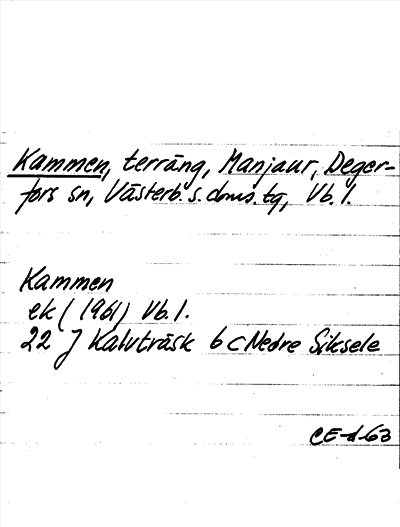 Kammen, terräng, Manjaur, Deger-
fors sn, Västerb. s. doms. tg, Vb. l.
Kammen
ek (1961) Vb. l.
22 J Kalvträsk b c Nedre Siksele
CE-d-63